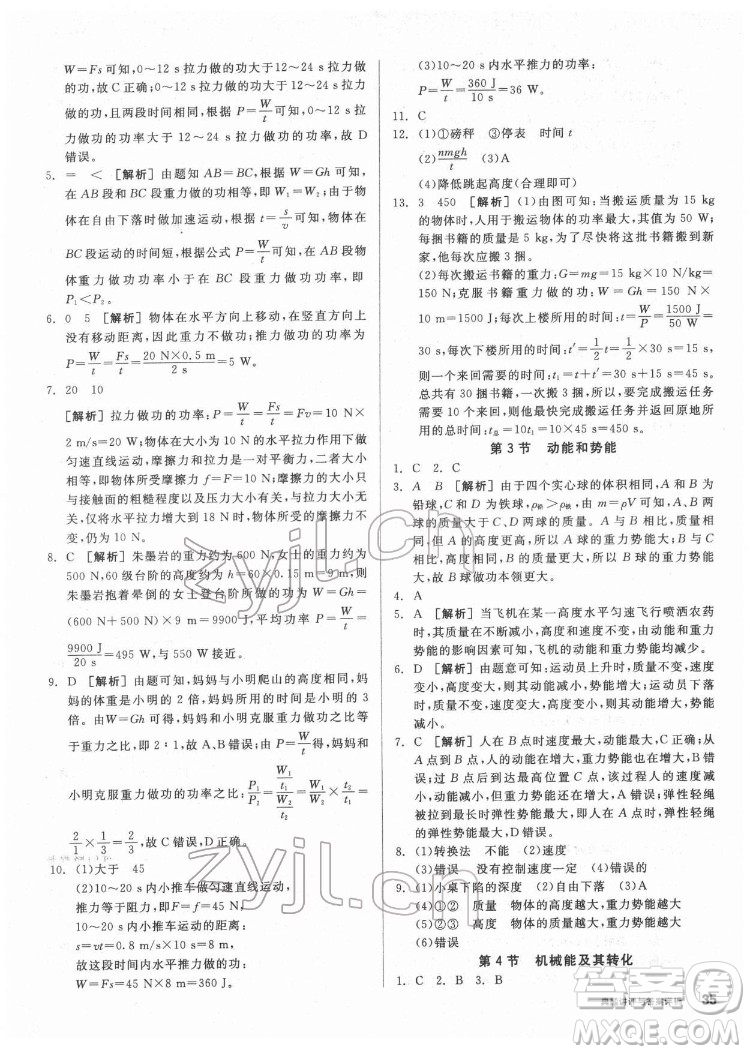 W=Fs 可知,0～12 s 拉力做的功大于 12～24 s 拉力做
的功,故 C 正确;两段时间相同,根据 P=W/t 可知,0～12 s
拉力做功的功率大于 12～24 s 拉力做功的功率,故 D
错误。
5. = < [解析] 由题知 AB=BC,根据 W=Gh 可知,
在 AB 段和 BC 段重力做的功相等,即 W₁=W₂;由于物
体在自由下落时做加速运动,根据 t=s/v 可知,物体在
AB 段运动的时间长,根据公式 P=W/t 可知,AB 段物
体重力做功功率小于在 BC 段重力做功功率,即
P₁<P₂。
6. 0 5 [解析] 物体在水平方向上移动,在竖直方向上
没有移动距离,因此重力不做功;水平推力做功的功率
P=W/t=Fs/t=20 N×0.5 m/2 s=5 W。
7. 20 10
[解析] 拉力做功的功率:P=W/t=Fs/t=Fv=10 N×
2 m/s=20 W;物体在大小为 10 N 的水平拉力作用下做
匀速直线运动,摩擦力和拉力是一对平衡力,二者大小
相等,摩擦力的大小为 f=F=10 N;摩擦力的大小只
与接触面的粗糙程度以及压力大小有关,与拉力大小无
关,仅将水平拉力增大到 18 N 时,物体受到的摩擦力不
变,仍为 10 N。
8. C [解析] 朱墨岩的重力约为 600 N,女士的重力约为
500 N,60 级台阶的高度约为 h=60×0.15 m=9 m,则
朱墨岩抱着晕倒的女士登台阶所做的功约为 W=Gh=
(600 N+500 N)×9 m=9900 J,功率约为 P=W/t=
9900 J/20 s=495 W,与 500 W 接近。
9. D [解析] 由题可知,妈妈与小明爬山的高度相同,妈
妈的体重是小明的 2 倍,妈妈所用的时间是小明的 3
倍。由 W=Gh 可知,妈妈和小明克服重力做功之比等
于重力之比,即 2∶1,故 A、B 错误;由 P=W/t 得,妈妈和
小明克服重力做功的功率之比:P₁/P₂=(W₁/t₁)/(W₂/t₂)=W₁/W₂×t₂/t₁=
2/1×1/3=2/3,故 C 错误,D 正确。
10. (1)大于 45
(2)10～20 s 内小推车做匀速直线运动,
推力等于阻力,即 F=f=45 N,
10～20 s 内小推车运动的距离:
s=vt=0.8 m/s×10 s=8 m,
故这段时间内水平推力做的功:
W=Fs=45 N×8 m=360 J
(3)10～20 s 内水平推力的功率:
P=W/t=360 J/10 s=36 W。
11. C
12. (1)①磅秤 ③停表 时间 t
(2)nmgh/t (3)A
(4)降低跳起高度(合理即可)
13. 3 450 [解析] (1)由图可知:当搬运质量为 15 kg
的物体时,人用于搬运物体的功率最大,其值为 50 W;
每捆书籍的质量为 5 kg,为了尽快将这批书籍搬到新
家,他每次应搬 3 捆。
(2)每次搬运书籍的重力:G=mg=15 kg×10 N/kg=
150 N;克服书籍重力做的功:W=Gh=150 N×
10 m=1500 J,每次上楼所用的时间:t=W/P=1500 J/50 W=
30 s,每次下楼所用的时间:t′=1/2t=1/2×30 s=15 s,
则来回一次所用的时间:t₁=t+t′=30 s+15 s=45 s。
总共有 30 捆书籍,一次搬 3 捆,所以,要完成搬运任务
需要 10 个来回,则他要完成搬运任务并返回原地所
用的总时间:t总=10t₁=10×45 s=450 s。
第 3 节 动能和势能
1. C 2. C
3. A B [解析] 由于四个实心球的体积相同,A 和 B 为
铅球,C 和 D 为铁球,ρ铅>ρ铁,根据 m=ρV 可知,A、B
两球的质量大于 C、D 两球的质量。当处在相同高度
时,A、B 两球的重力势能更大。所以 A、B 的重力势能
大,能够做功的本领也更大。
4. A
5. A [解析] 当飞机在某一高度水平匀速飞行喷洒农药
时,由于质量不断减小,高度、速度不变,由动能和重力
势能的影响因素可知,飞机的动能和重力势能均减少。
6. D [解析] 由题意可知:运动员上升时,质量不变,速度
变小,高度变大,则动能减小,势能变大;运动员下落
时,质量不变,速度变大,高度变小,则动能变大,势能
减小。
7. C [解析] 人在 B 点时速度最大,动能最大,从
A 点到 B 点、C 点,人一直下落,重力势能一直减小;
越过 B 点后,人的动能减小,该过程人的速度减
小,人从 A 点起,弹性轻绳开始被拉伸,弹性轻绳
最长时弹性势能最大,即在 A 点时,弹性轻绳
的弹性势能不是最大。
8. (1)转换法 不能 (2)速度
(3)错误 没有控制速度一定 (4)错误的
9. (1)小桌下陷的深度 (2)自由 (3)A
(4)①② 质量 物体的质量越大,重力势能越大
(5)②③ 高度 物体的高度越大,重力势能越大
(6)错误
第 4 节 机械能及其转化
1. C 2. B 3. B
zyjl.cn
zyjl.cn
答案圈
MXQE.COM
35